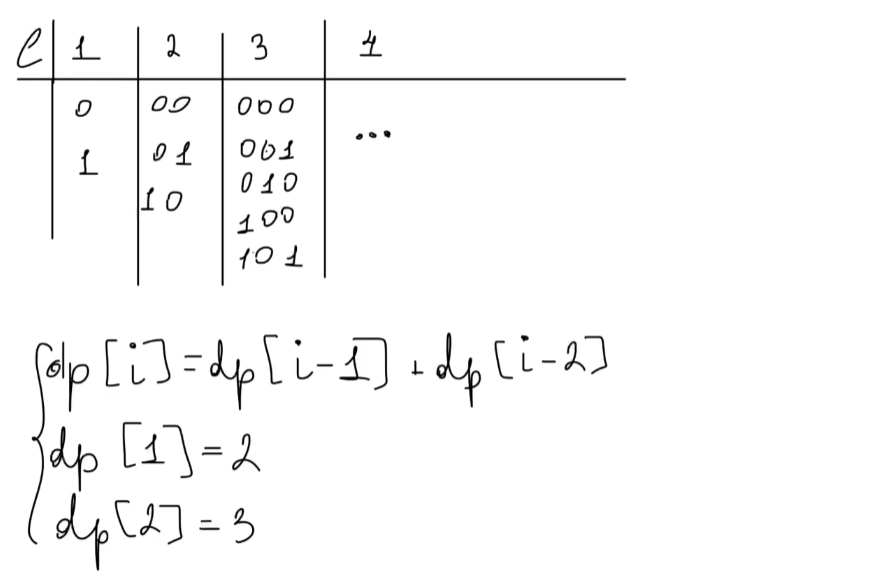 l 1 2 3 4
0 00 000 ...
1 01 001
10 010
100
101
dp[i]=dp[i-1]+dp[i-2]
dp[1]=2
dp[2]=3